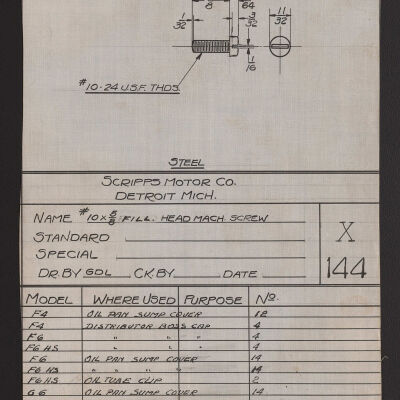 8
64
1
32
3
32
11
32
1
16
#10-24 U.S.F. THDS.
STEEL
SCRIPPS MOTOR CO.
DETROIT MICH.
NAME #10 x 5/8 FILL. HEAD MACH. SCREW
STANDARD
SPECIAL
DR. BY GDL CK. BY DATE
X
144
MODEL WHERE USED PURPOSE NO.
F4 OIL PAN SUMP COVER 12
F4 DISTRIBUTOR BOSS CAP 4
F6 " " " 4
F6 HS " " " 4
F6 OIL PAN SUMP COVER 14
F6 HS " " " " 14
F6 HS OIL TUBE CLIP 2
G6 OIL PAN SUMP COVER 14